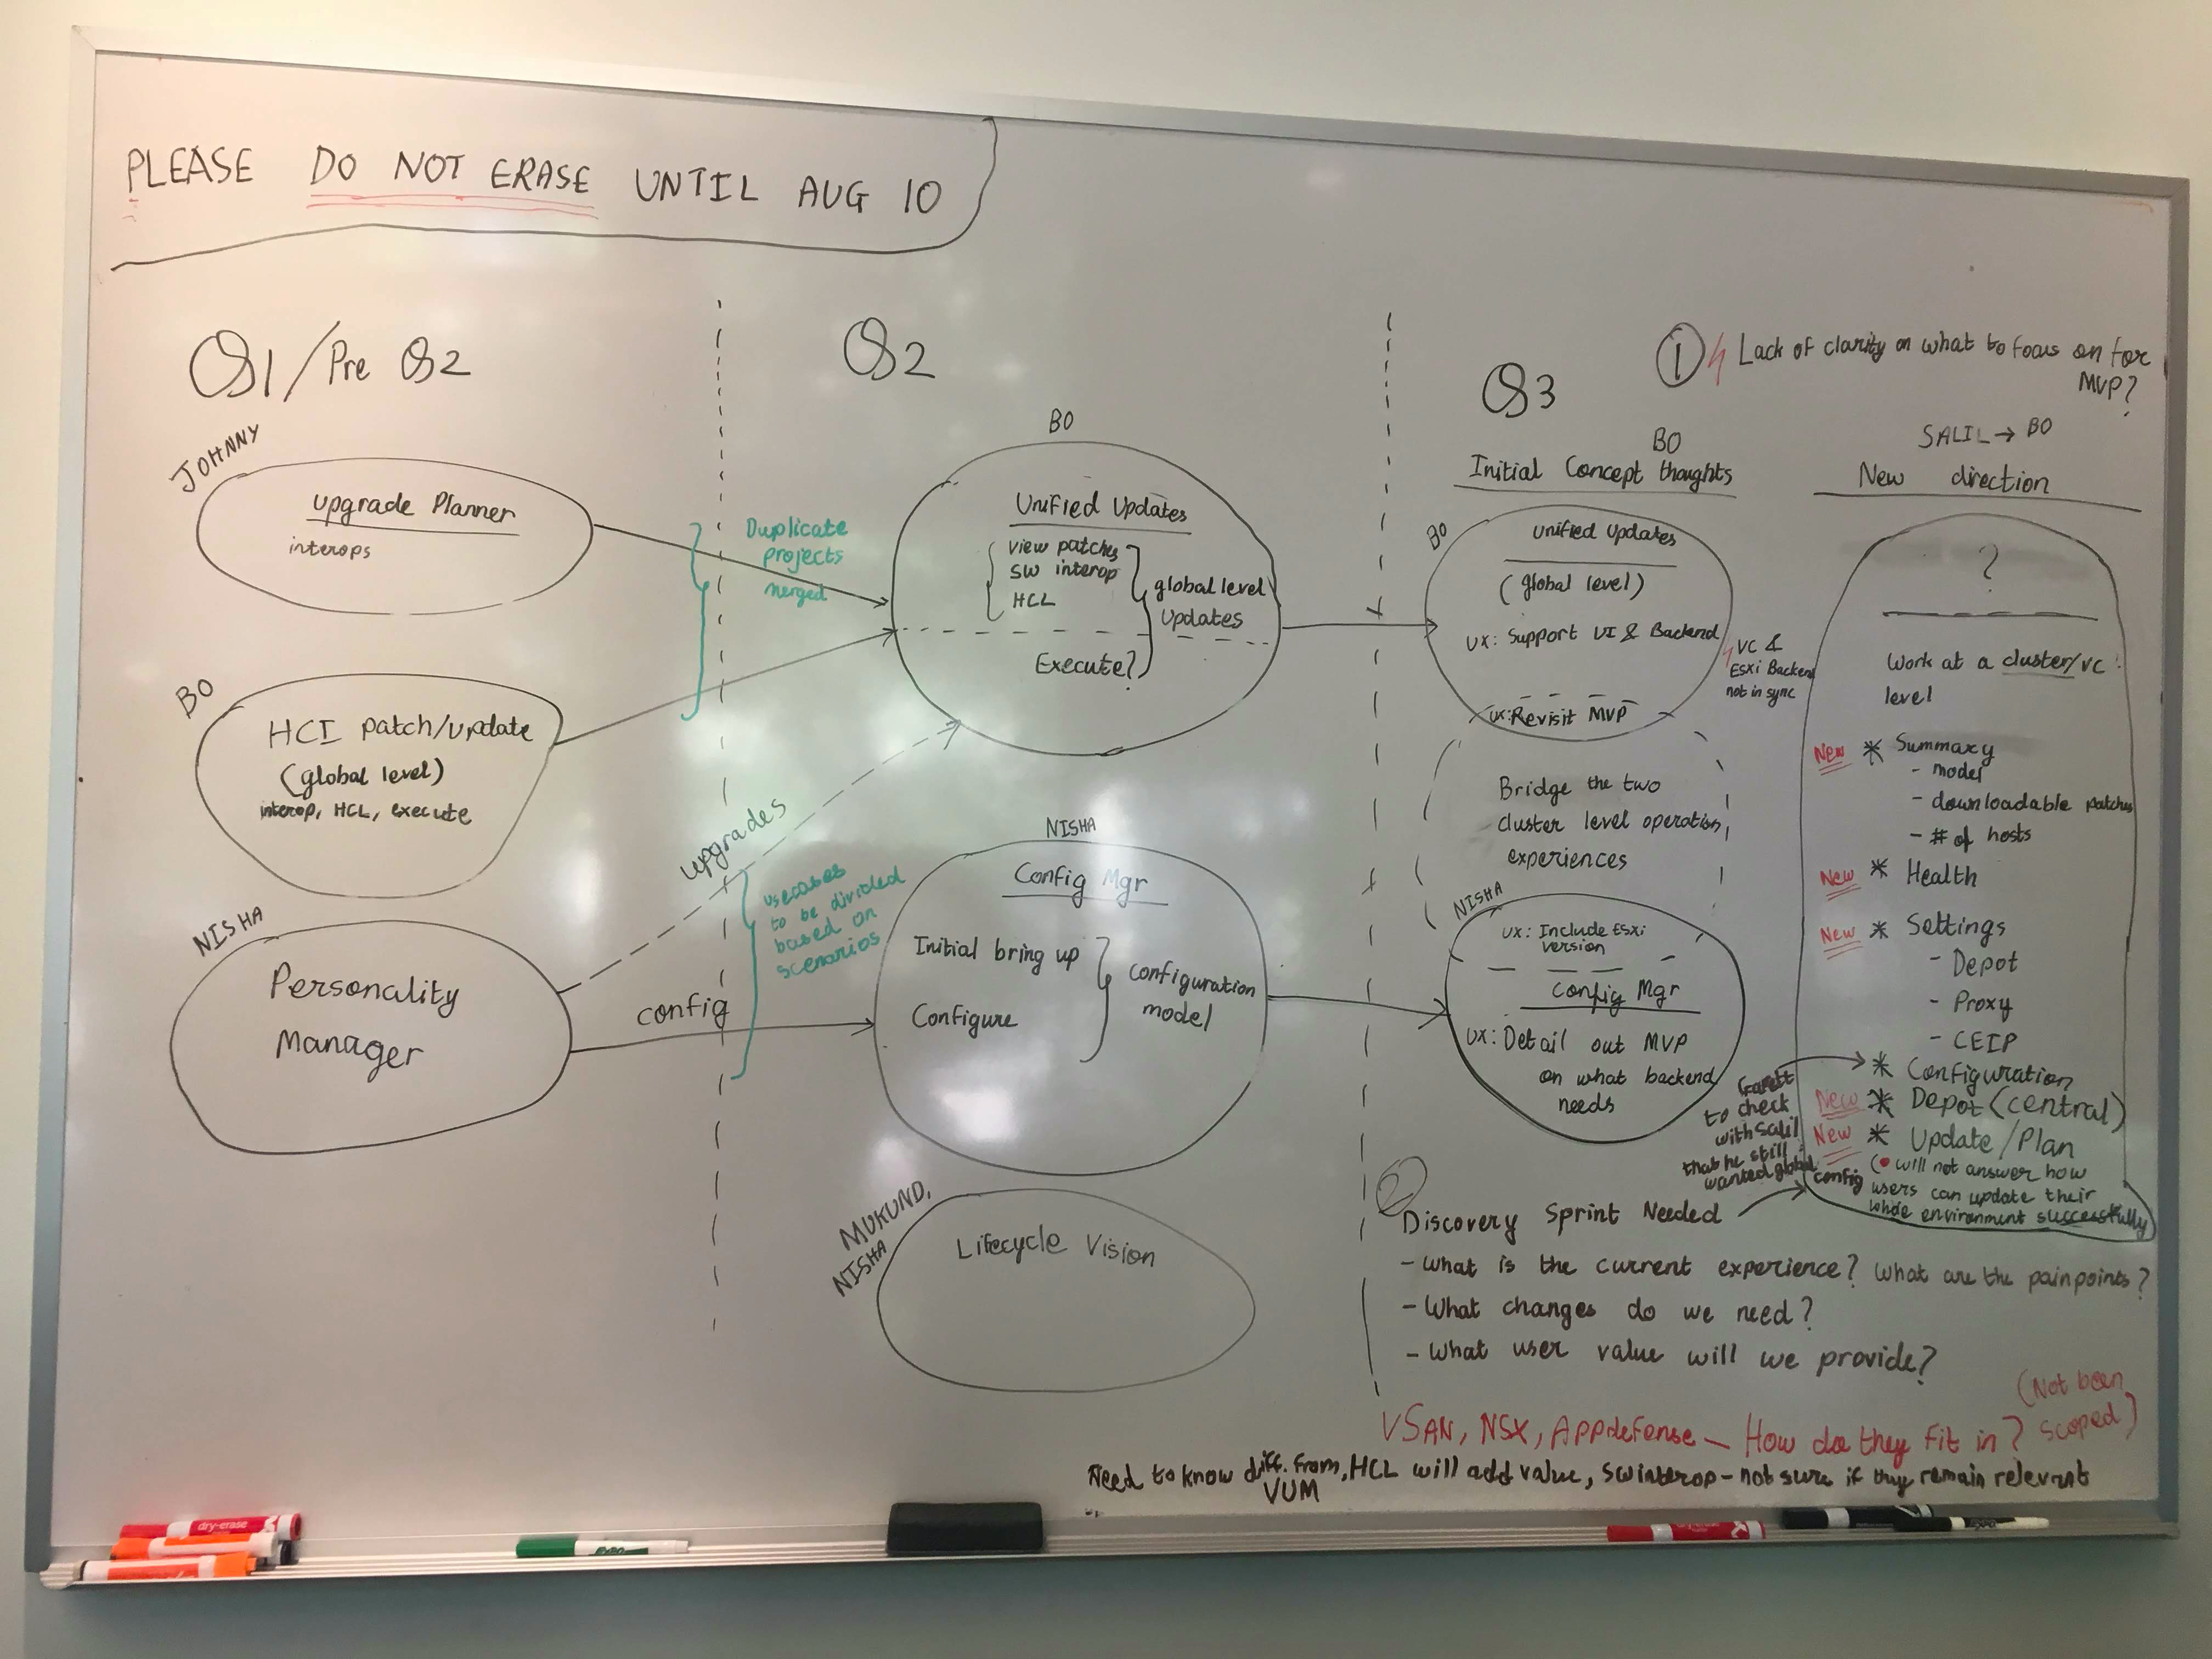 PLEASE DO NOT ERASE UNTIL AUG 10
Q1/Pre Q2
JOHNNY
Upgrade Planner
interops
BO
HCI patch/update
(global level)
interop, HCL, execute
NISHA
Personality
Manager
upgrades
config
Duplicate
projects
merged
usecases
to be divided
based on
scenarios
Q2
BO
Unified Updates
view patches
SW interop
HCL
global level
Updates
Execute?
NISHA
Config Mgr
Initial bring up
Configure
configuration
model
MUKUND,
NISHA
Lifecycle Vision
Q3
BO
Initial Concept thoughts
BO
Unified Updates
(global level)
UX: Support UI & Backend
VC &
ESXi Backend
not in sync
UX: Revisit MVP
Bridge the two
cluster level operation
experiences
NISHA
UX: Include ESXi
version
Config Mgr
UX: Detail out MVP
on what backend
needs
1 Lack of clarity on what to focus on for
MVP?
SALIL → BO
New direction
?
Work at a cluster/VC
level
New * Summary
- model
- downloadable patches
- # of hosts
New * Health
New * Settings
- Depot
- Proxy
- CEIP
* Configuration
New * Depot (central)
New * Update/Plan
(• will not answer how
users can update their
whole environment successfully
to check
with Salil
that he still
wanted global
config
2
Discovery Sprint Needed
- What is the current experience? What are the painpoints?
- What changes do we need?
- What user value will we provide?
VSAN, NSX, APPdefense - How do they fit in?
(Not been
scoped)
Need to know diff. from, HCL will add value, SW interop - not sure if they remain relevant
VUM
dry-erase
EXPO